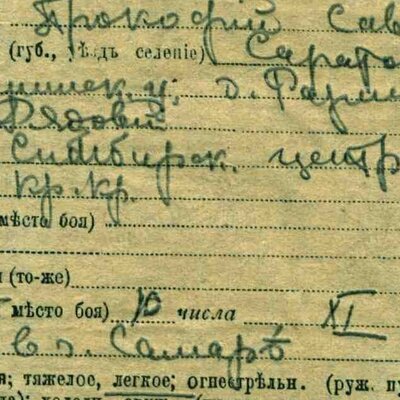 Прокофій Сав
(губ., уѣздъ селеніе) Сарато
шинск. у. д.
Рядовій
Симбирск. центр
кр. кр.
мѣсто боя)
(то-же)
мѣсто боя) 10 числа XI
в г. Самарѣ
я; тяжелое, легкое; огнестрѣльн. (руж. пу